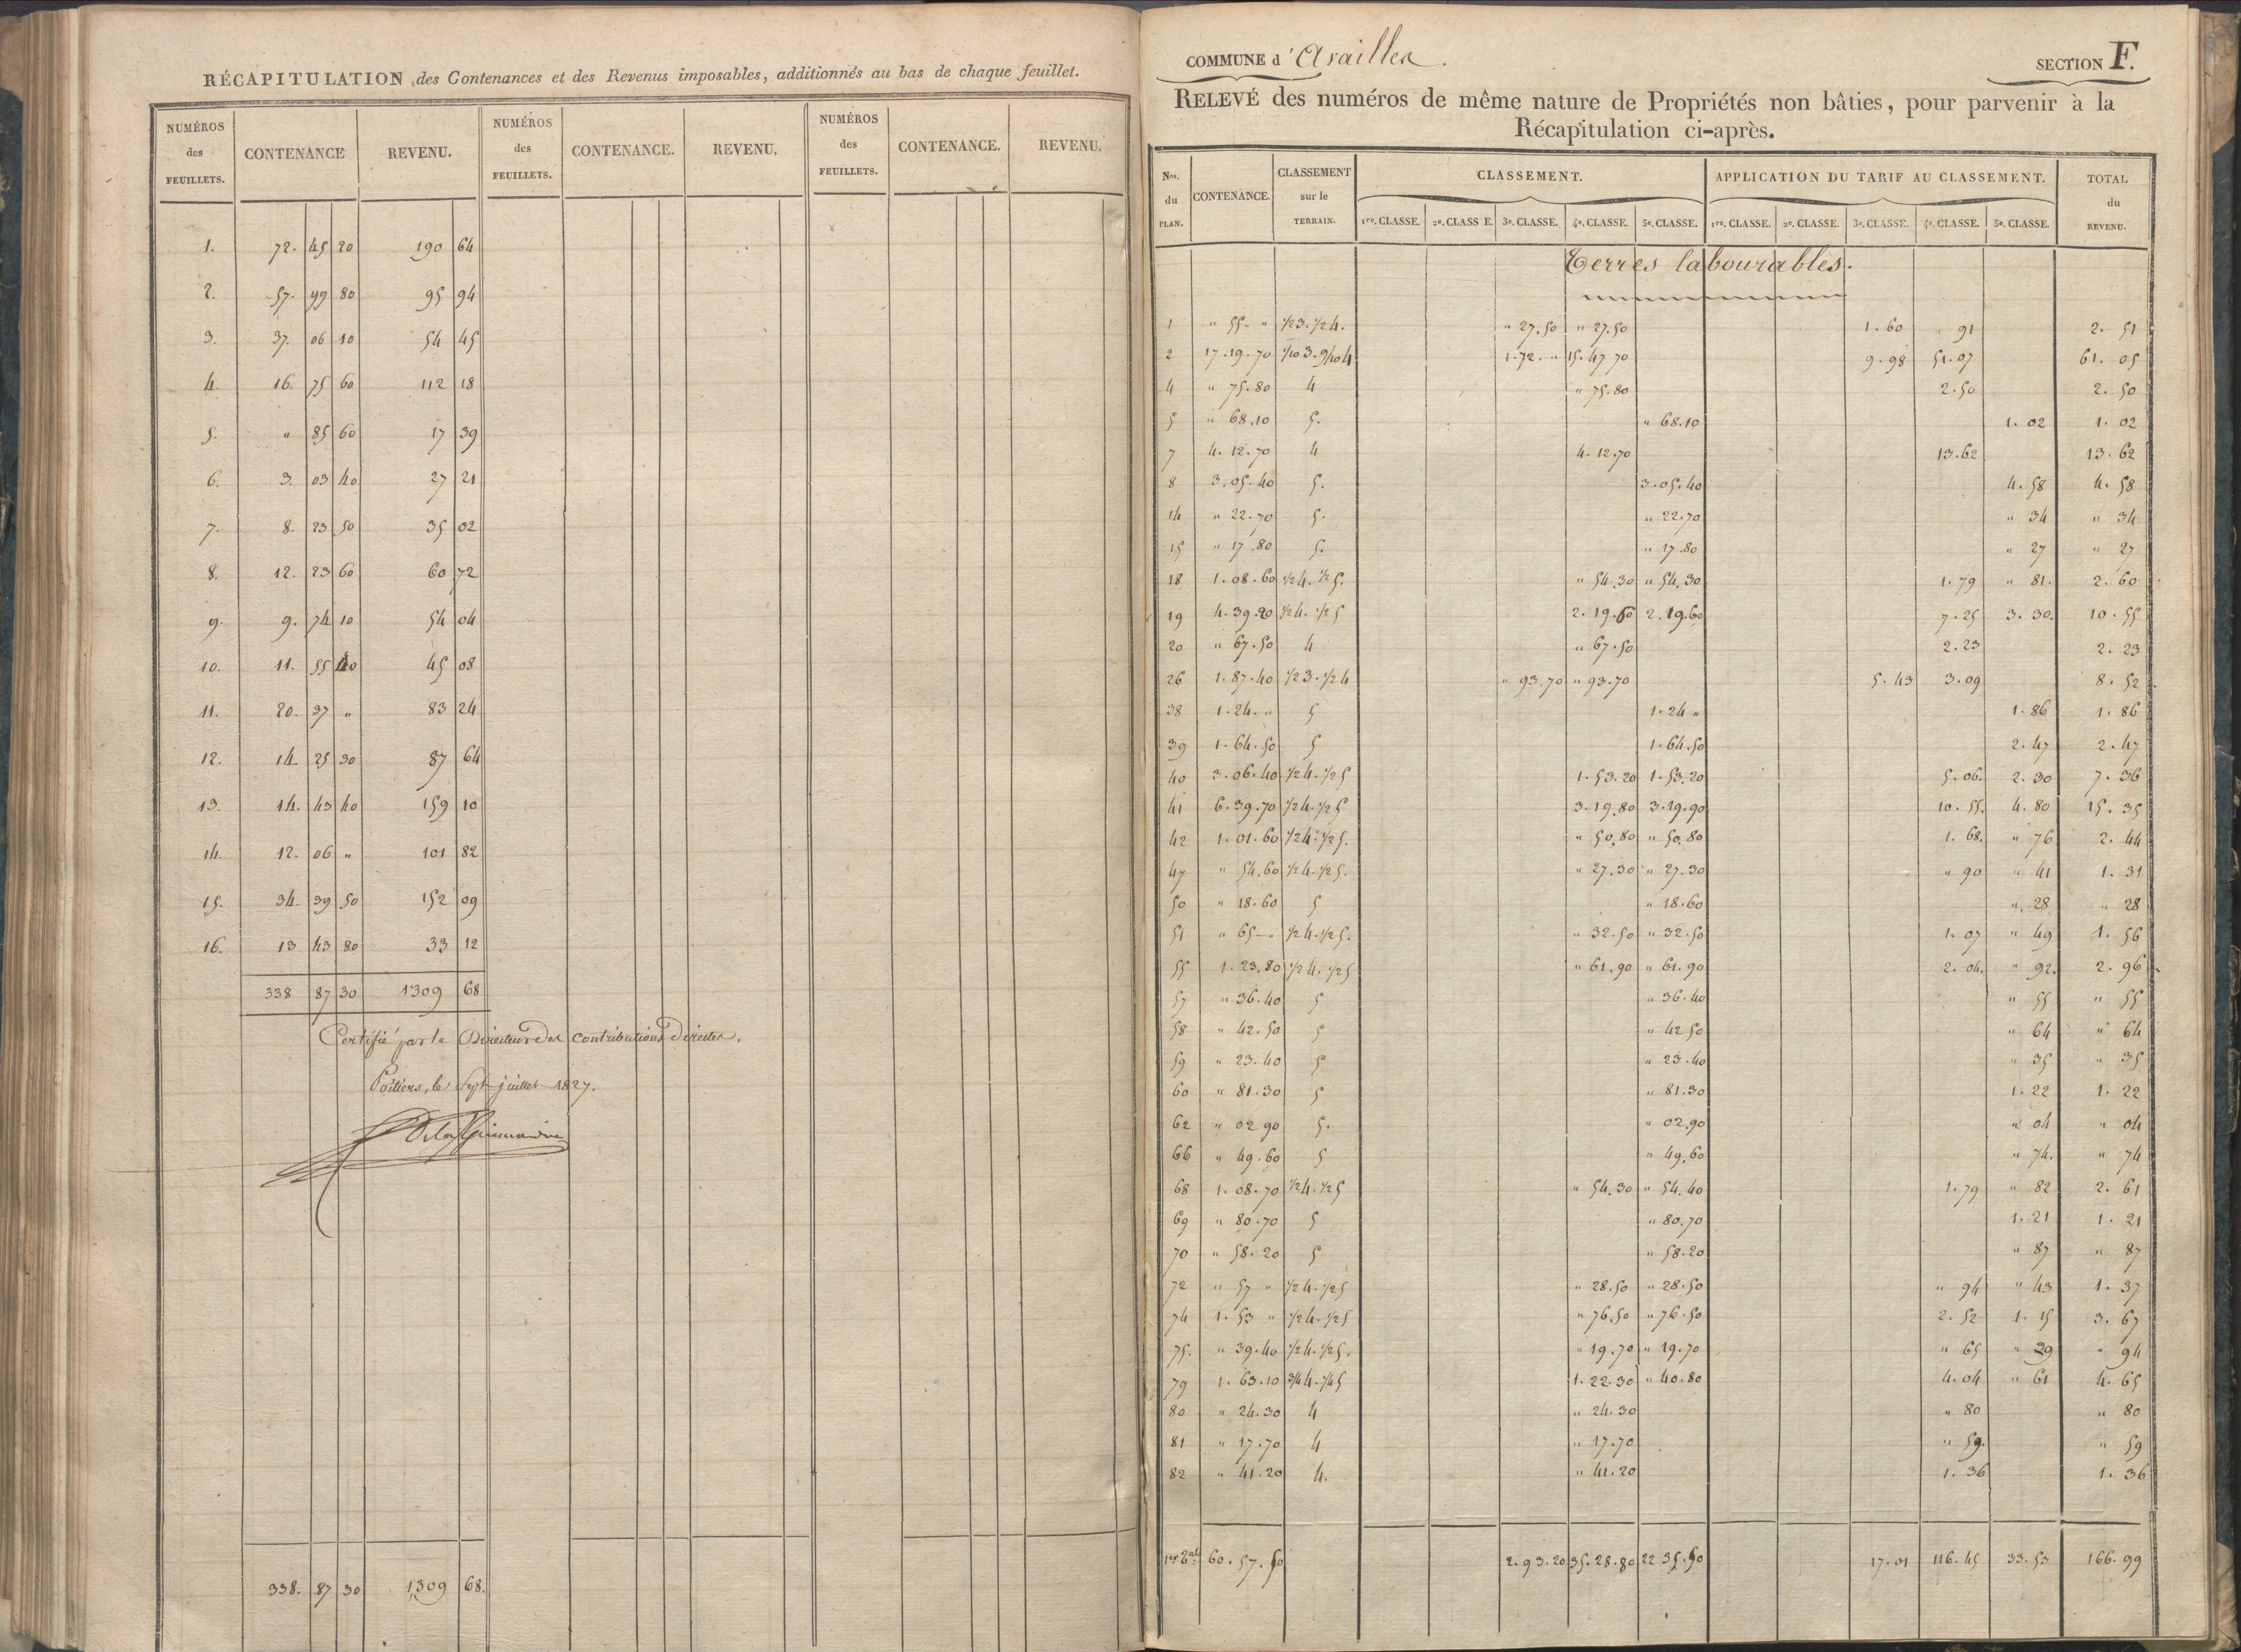 RÉCAPITULATION des Contenances et des Revenus imposables, additionnés au bas de chaque feuillet.
NUMÉROS des FEUILLETS. CONTENANCE REVENU. NUMÉROS des FEUILLETS. CONTENANCE. REVENU. NUMÉROS des FEUILLETS. CONTENANCE. REVENU.
1. 72. 45 20 190 64
2. 57. 99 80 95 94
3. 37. 06 10 54 45
4. 16. 75 60 112 18
5. " 85 60 17 39
6. 3. 03 40 27 21
7. 8. 23 50 35 02
8. 12. 23 60 60 72
9. 9. 74 10 54 04
10. 11. 55 40 45 08
11. 20. 37 " 83 24
12. 14. 25 30 87 64
13. 14. 43 40 159 10
14. 12. 06 " 101 82
15. 34. 39 50 152 09
16. 13 43 80 33 12
338 87 30 1309 68
Certifié par le Directeur des contributions Directes.
Poitiers, le Sept juillet 1827.
338. 87 30 1309 68.
COMMUNE d'Availles. SECTION F.
RELEVÉ des numéros de même nature de Propriétés non bâties, pour parvenir à la
Récapitulation ci-après.
Nos. du PLAN. CONTENANCE. CLASSEMENT sur le TERRAIN. CLASSEMENT. APPLICATION DU TARIF AU CLASSEMENT. TOTAL du REVENU.
1re. CLASSE. 2e. CLASSE. 3e. CLASSE. 4e. CLASSE. 5e. CLASSE. 1re. CLASSE. 2e. CLASSE. 3e. CLASSE. 4e. CLASSE. 5e. CLASSE.
Terres labourables.
1 " 55 - " 1/2 3. 1/2 4. " 27.50 " 27.50 1.60 " 91 2. 51
2 17.19.70 1/10 3. 9/10 4 1.72. " 15.47 70 9.98 51.07 61. 05
4 " 75.80 4 " 75.80 2.50 2. 50
5 " 68.10 5. " 68.10 1. 02 1. 02
7 4. 12.70 4 4. 12.70 13.62 13. 62
8 3.05.40 5. 3.05.40 4. 58 4. 58
14 " 22.70 5. " 22.70 " 34 " 34
15 " 17.80 5. " 17.80 " 27 " 27
18 1.08.60 1/2 4. 1/2 5. " 54.30 " 54.30 1.79 " 81. 2. 60
19 4.39.20 1/2 4. 1/2 5 2.19.60 2.19.60 7.25 3. 30. 10. 55
20 " 67.50 4 " 67.50 2.23 2. 23
26 1.87.40 1/2 3. 1/2 4 " 93.70 " 93.70 5.43 3.09 8. 52
38 1.24. " 5 1.24 " 1.86 1. 86
39 1.64.50 5 1.64.50 2.47 2. 47
40 3.06.40 1/2 4. 1/2 5 1.53.20 1.53.20 5.06. 2.30 7. 36
41 6.39.70 1/2 4. 1/2 5 3.19.80 3.19.90 10.55. 4.80 15. 35
42 1.01.60 1/2 4. 1/2 5. " 50.80 " 50.80 1.68. " 76 2. 44
47 " 54.60 1/2 4. 1/2 5. " 27.30 " 27.30 " 90 " 41 1. 31
50 " 18.60 5 " 18.60 " 28 " 28
51 " 65 - " 1/2 4. 1/2 5. " 32.50 " 32.50 1.07 " 49 1. 56
55 1.23.80 1/2 4. 1/2 5 " 61.90 " 61.90 2.04. " 92. 2. 96
57 " 36.40 5 " 36.40 " 55 " 55
58 " 42.50 5 " 42 50 " 64 " 64
59 " 23.40 5 " 23.40 " 35 " 35
60 " 81.30 5 " 81.30 1.22 1. 22
62 " 02 90 5. " 02.90 " 04 " 04
66 " 49.60 5 " 49.60 " 74. " 74
68 1.08.70 1/2 4. 1/2 5 " 54.30 " 54.40 1.79 " 82 2. 61
69 " 80.70 5 " 80.70 1.21 1. 21
70 " 58.20 5 " 58.20 " 87 " 87
72 " 57 " 1/2 4. 1/2 5 " 28.50 " 28.50 " 94 " 43 1. 37
74 1.53 " 1/2 4. 1/2 5 " 76.50 " 76.50 2.52 1.15 3. 67
75. " 39.40 1/2 4. 1/2 5. " 19.70 " 19.70 " 65 " 29 " 94
79 1.63.10 3/4 4. 1/4 5 1.22.30 " 40.80 4.04 " 61 4. 65
80 " 24.30 4 " 24.30 " 80 " 80
81 " 17.70 4 " 17.70 " 59. " 59
82 " 41.20 4. " 41.20 1.36 1. 36
60. 57. 50 2.93.20 35.28.80 22 35.50 17.01 116.45 33.53 166.99